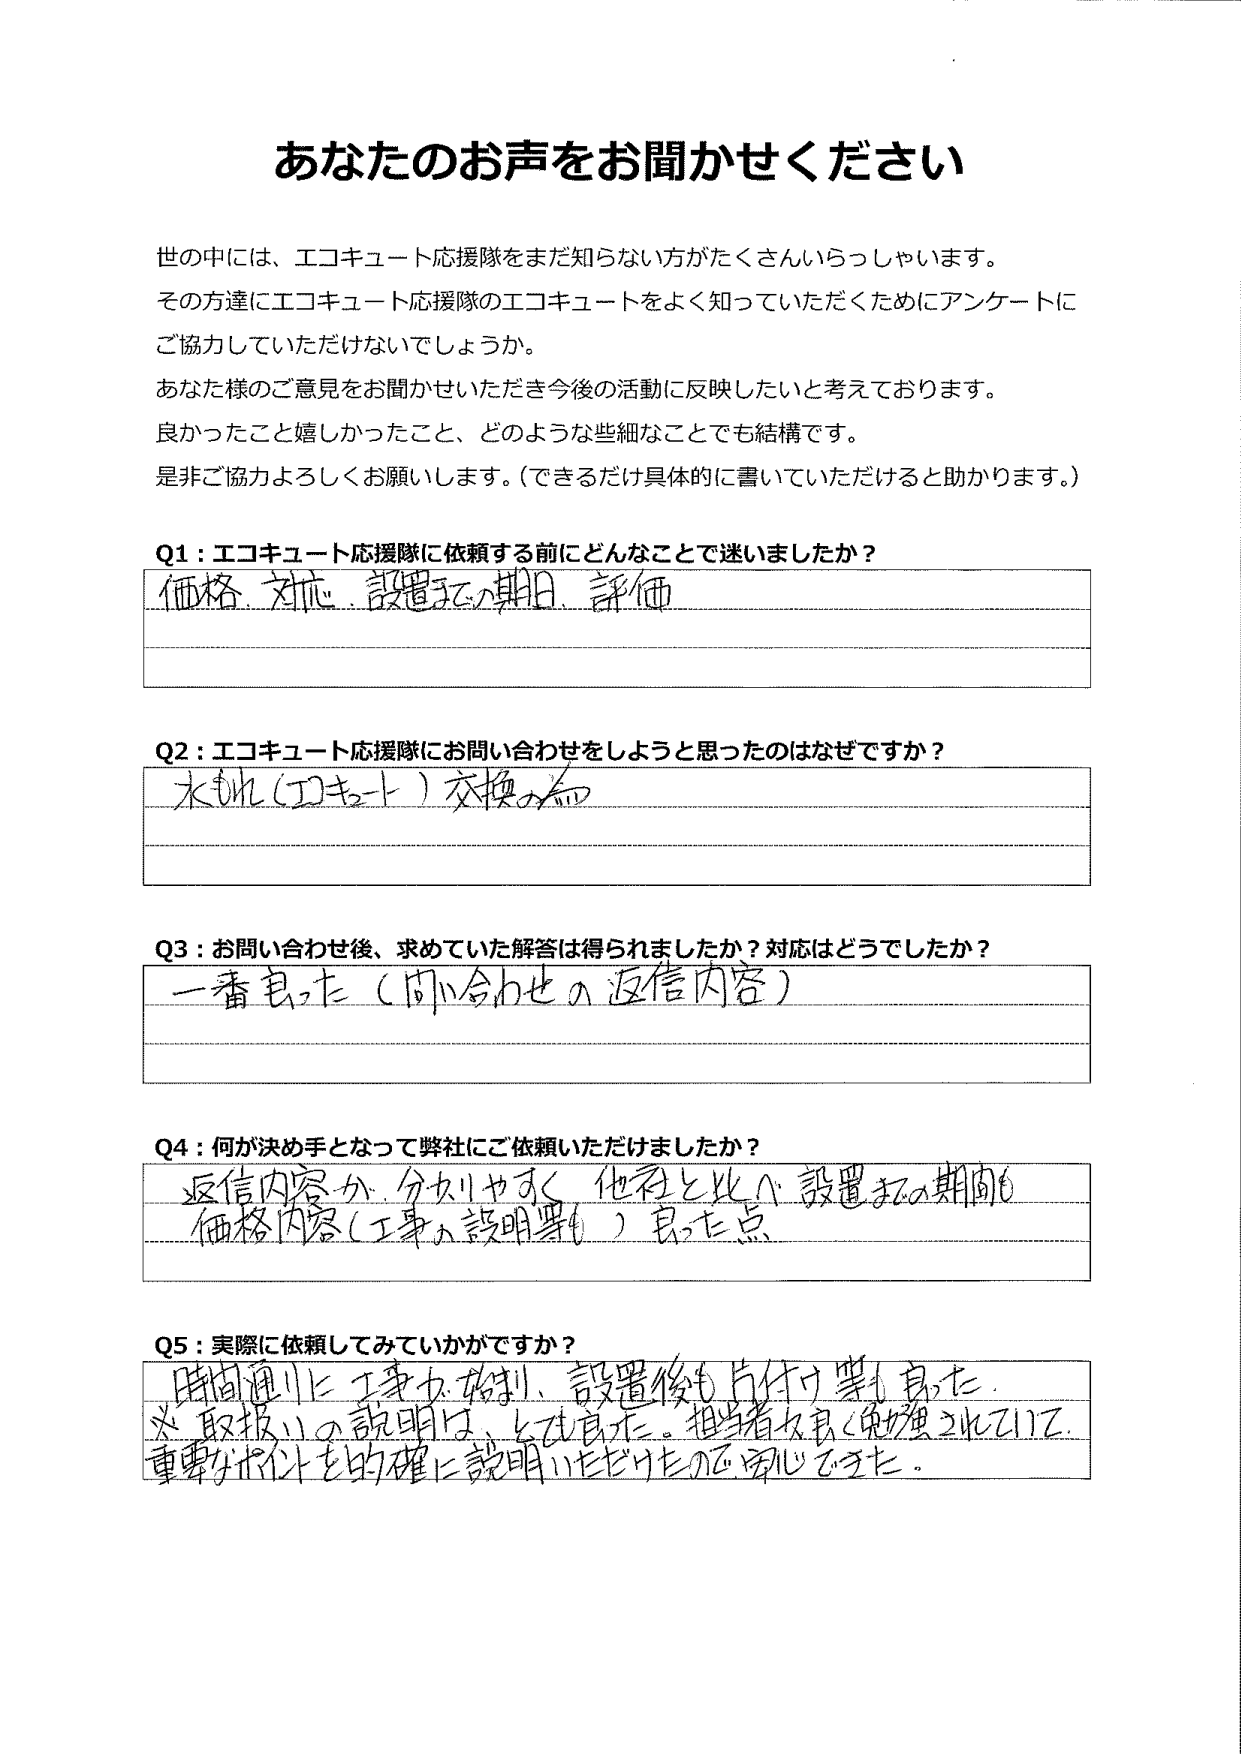 あなたのお声をお聞かせください
世の中には、エコキュート応援隊をまだ知らない方がたくさんいらっしゃいます。
その方達にエコキュート応援隊のエコキュートをよく知っていただくためにアンケートに
ご協力していただけないでしょうか。
あなた様のご意見をお聞かせいただき今後の活動に反映したいと考えております。
良かったこと嬉しかったこと、どのような些細なことでも結構です。
是非ご協力よろしくお願いします。(できるだけ具体的に書いていただけると助かります。)
Q1：エコキュート応援隊に依頼する前にどんなことで迷いましたか？
価格、対応、設置までの期日、評価
Q2：エコキュート応援隊にお問い合わせをしようと思ったのはなぜですか？
水もれ(エコキュート)交換の為
Q3：お問い合わせ後、求めていた解答は得られましたか？対応はどうでしたか？
一番良った(問い合わせの返信内容)
Q4：何が決め手となって弊社にご依頼いただけましたか？
返信内容が、分かりやすく、他社と比べ設置までの期間も
価格内容(工事の説明等も)良った点
Q5：実際に依頼してみていかがですか？
時間通りに工事が始まり、設置後も片付け等も良った.
※取扱いの説明は、とても良った。担当者が良く勉強されていて.
重要なポイントを的確に説明いただけたので、安心できた。